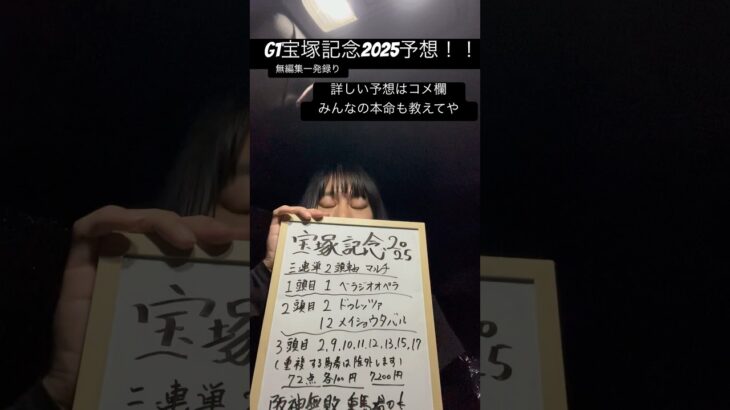 G1宝塚記念2025予想！！
無編集一発録り
詳しい予想はコメ欄
みんなの本命も教えてや
宝塚記念2025
三連単2頭軸マルチ
1頭目 1 ベラジオオペラ
2頭目 2 ドゥレッツァ
12 メイショウタバル
3頭目 2,9,10,11,12,13,15,17
(重複する馬番は除外します)
72点 各100円 7200円
阪神無敗